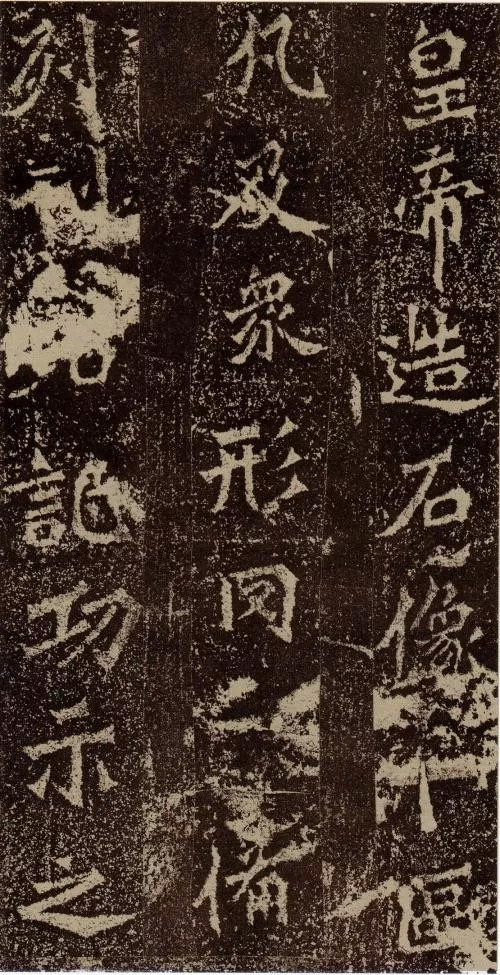 皇帝造石像區
凡及眾形罔備
列記功示之